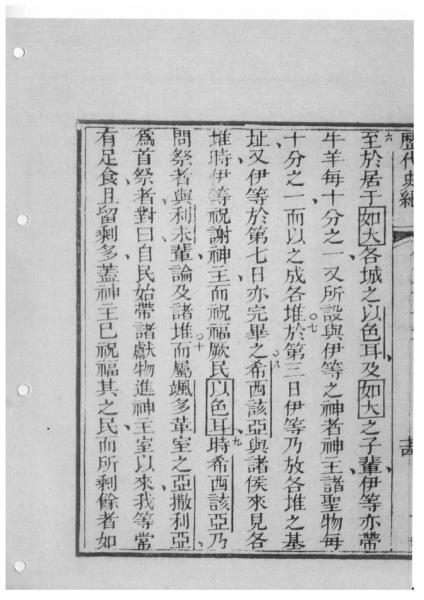 歷代史紀
六至於居于如大各城之以色耳及如大之子輩伊等亦帶
牛羊每十分之一、又所設與伊等之神者神主諸聖物每
十分之一、而以之成各堆。七於第三日伊等乃放各堆之基
址、又伊等於第七日亦完畢之。八希西該亞與諸侯來見各
堆時、伊等祝謝神主、而祝福厥民以色耳、九時希西該亞乃
問祭者與利未輩論及諸堆。十而屬颯多革室之亞撒利亞、
爲首祭者、對曰、自民始帶諸獻物進神主室以來、我等常
有足食、且留剩多、蓋神主已祝福其之民、而所剩餘者如